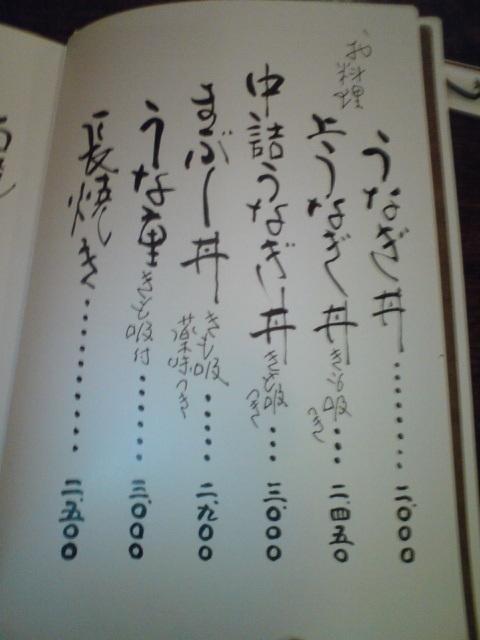 お料理
うなぎ丼・・・・・・・・二、〇〇〇
上うなぎ丼きも吸つき・・・二、四五〇
中詰うなぎ丼きも吸つき・・・三、〇〇〇
まぶし丼きも吸薬味つき・・・・・二、九〇〇
うな重きも吸付・・・・・・三、〇〇〇
長焼き・・・・・・・・・二、五〇〇